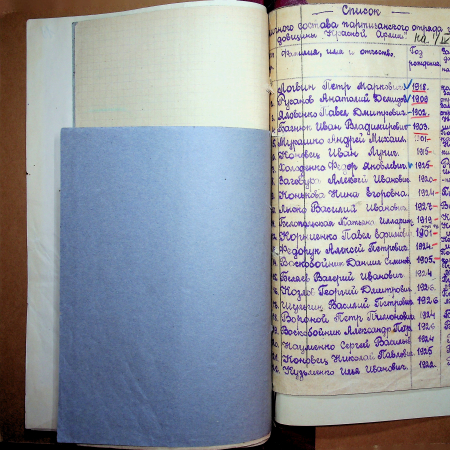 — Список —
личного состава партизанского отряда
довщины Красной Армии
Фамилия, имя и отчество. Год рождения
Логвин Петр Маркович 1918
Русанов Анатолий Демидов 1906
Яловенко Павел Дмитрович 1902
Бахнюк Иван Владимирович 1903
Мурашко Андрей Михаил
Коновец Иван Лукич 1915
Холоденко Федор Яковлевич 1925
Загабура Алексей Иванович 1920
Конькова Нина Егоровна 1924
Янско Василий Иванович 1927
Белопольская Татьяна Илларион 1919
Корниенко Павел Ефимович 1901
Федорук Алексей Петрович 1924
Воскобойник Даниил Семенов 1905
Беляев Валерий Иванович 1924
Козлов Георгий Дмитрович 1926
Василий Петрович 1926
Вороной Петр Пимонович 1924
Воскобойник Александр 1926
Науменко Сергей Василь 1924
Коновец Николай Павлович 1925
Кузьменко Илья Иванович 1922